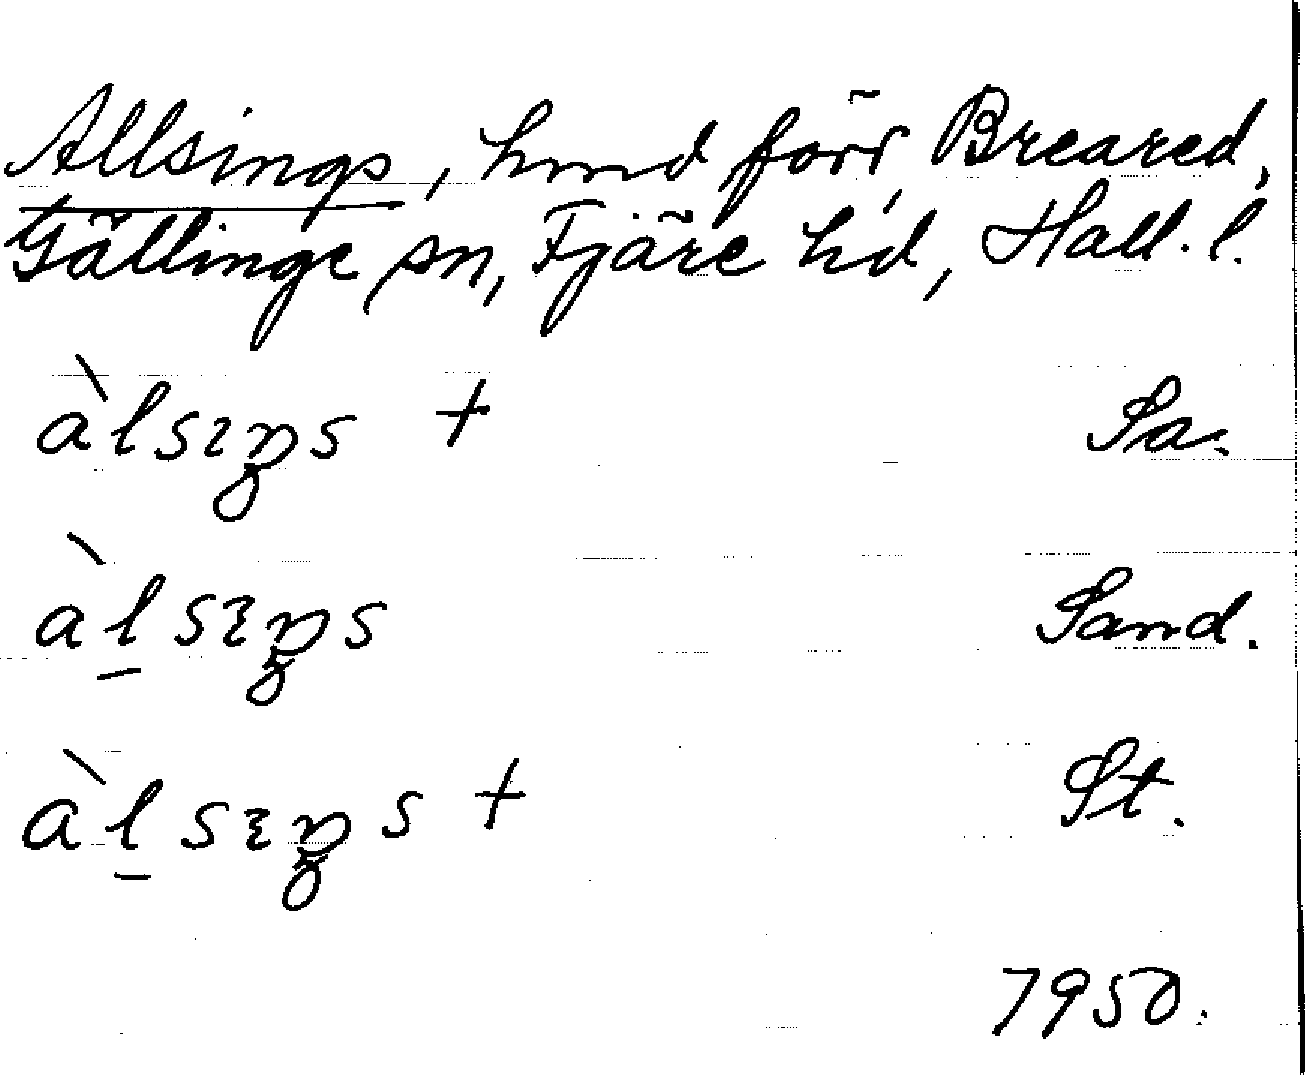 Allsings, hmd förr, Breared,
Gällinge sn, Fjäre hd, Hall. l.
àlsıŋs + Sa.
àl̲sıŋs Sand.
àl̲sıŋs + St.
7950.